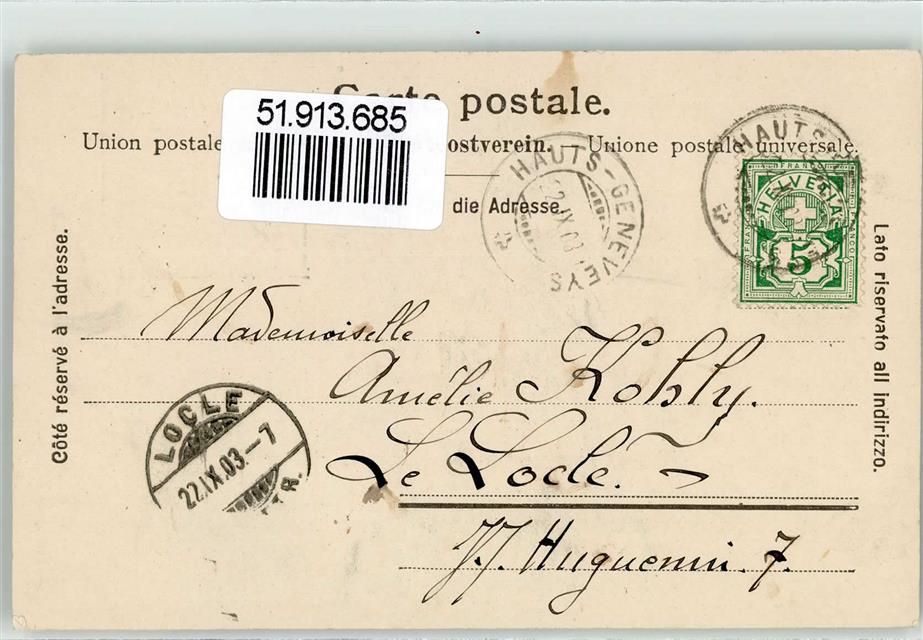 51.913.685
Carte postale.
Union postale ostverein. — Unione postale universale.
die Adresse.
Côté réservé à l'adresse.
Lato riservato all indirizzo.
HAUTS-GENEVEYS
22.IX.03
HAUTS-
FRANCO
HELVETIA
5
Mademoiselle
Amélie Kohly.
Le Locle.
J.J. Huguenin. 7.
LOCLE
22.IX.03-7